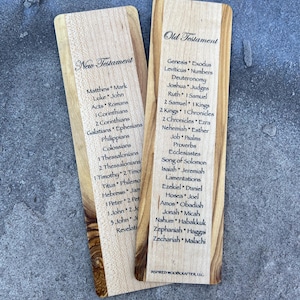 New Testament
Matthew • Mark
Luke • John
Acts • Romans
1 Corinthians
2 Corinthians
Galatians • Ephesians
Philippians
Colossians
1 Thessalonians
2 Thessalonians
1 Timothy • 2
Titus • Philem
Hebrews •
1 Peter • 2
1 John • 2
3 John •
Revelat
Old Testament
Genesis • Exodus
Leviticus • Numbers
Deuteronomy
Joshua • Judges
Ruth • 1 Samuel
2 Samuel • 1 Kings
2 Kings • 1 Chronicles
2 Chronicles • Ezra
Nehemiah • Esther
Job • Psalms
Proverbs
Ecclesiastes
Song of Solomon
Isaiah • Jeremiah
Lamentations
Ezekiel • Daniel
Hosea • Joel
Amos • Obadiah
Jonah • Micah
Nahum • Habakkuk
Zephaniah • Haggai
Zechariah • Malachi
INSPIRED WOODCRAFTER, LLC.